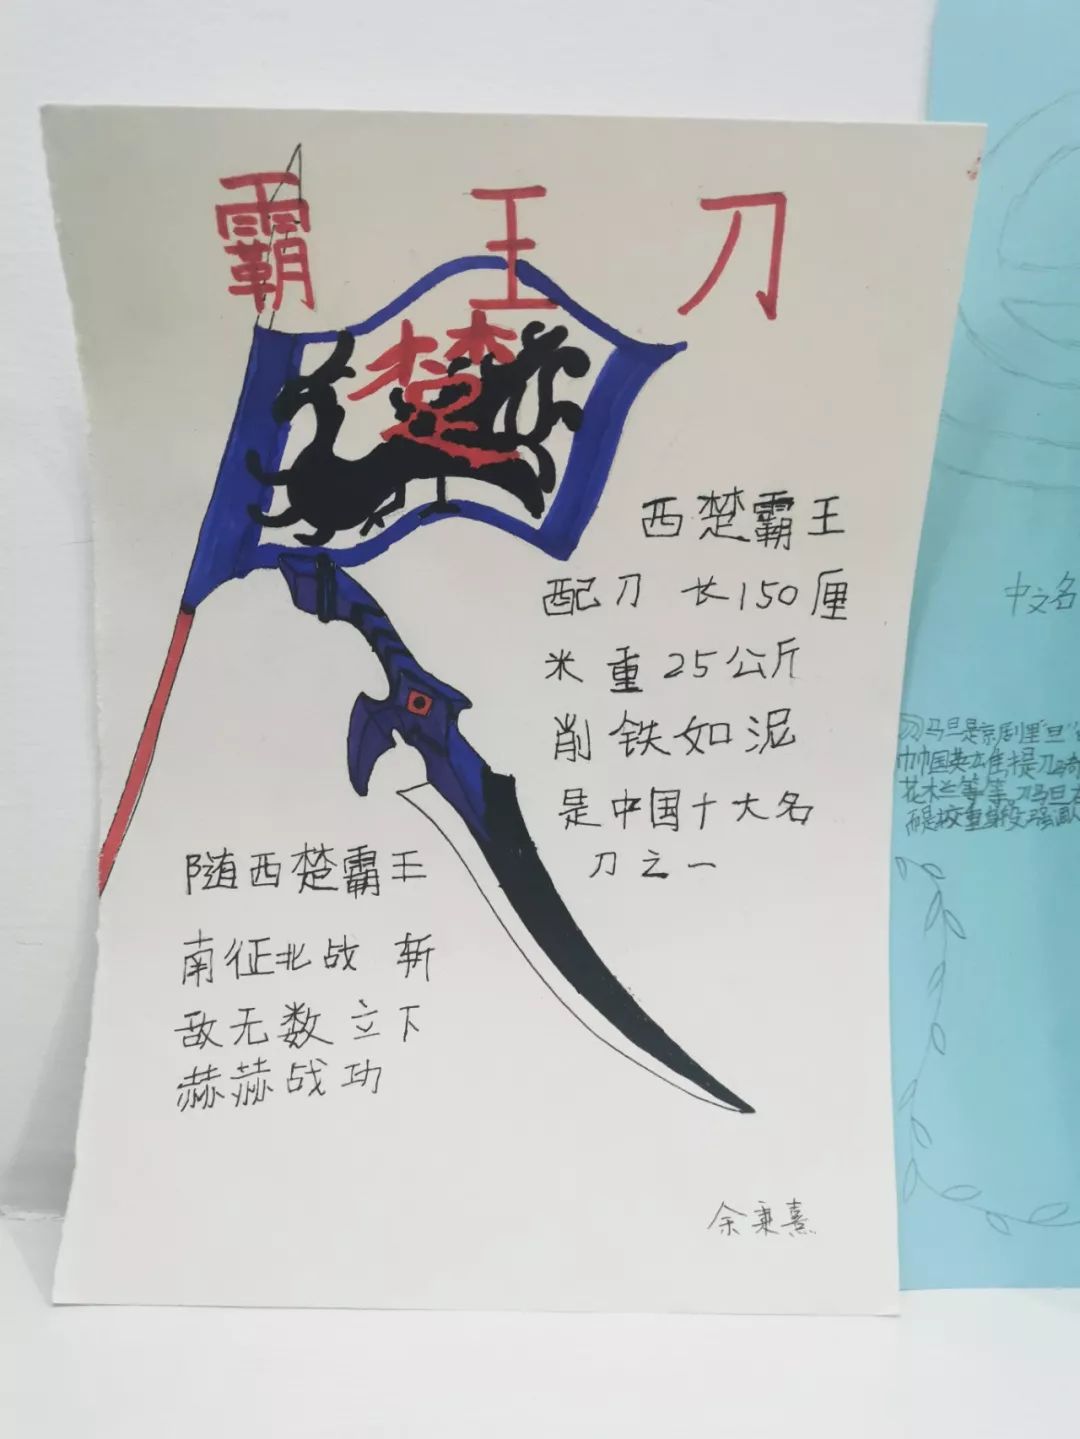 霸王刀
楚
西楚霸王
配刀 长150厘
米 重25公斤
削铁如泥
是中国十大名
刀之一
随西楚霸王
南征北战 斩
敌无数 立下
赫赫战功
余秉熹
中文名
刀马旦是京剧里"旦"
巾帼英雄提刀骑
花木兰等等 刀马旦